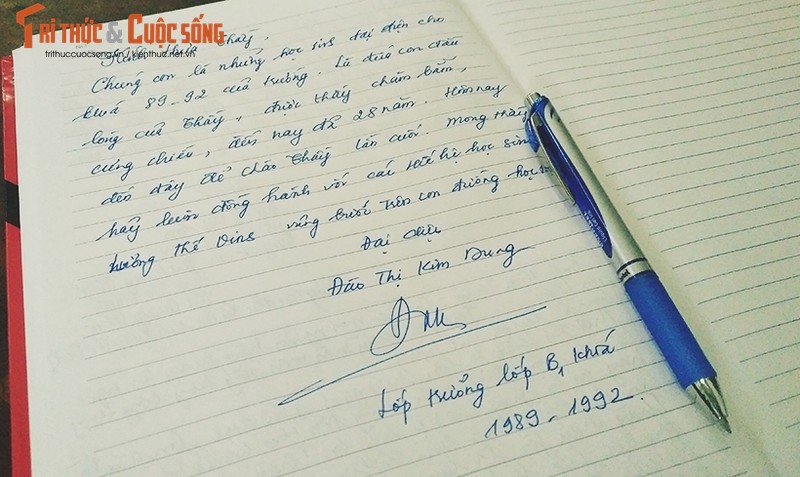 TRI THỨC & CUỘC SỐNG
trithuccuocsong.vn / kienthuc.net.vn
Kính thưa Thầy,
Chúng con là những học sinh đại diện cho
khoá 89-92 của trường. Là đứa con đầu
lòng của Thầy, được thầy chăm bẵm,
cưng chiều, đến nay đã 28 năm. Hôm nay
đến đây để chào Thầy lần cuối. Mong thầy
hãy luôn đồng hành với các thế hệ học sinh
Lương Thế Vinh vững bước trên con đường học
Đại diện
Đào Thị Kim Dung
Lớp trưởng lớp B1 khoá
1989-1992.